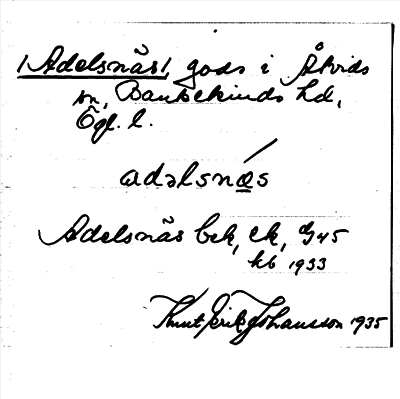 /Adelsnäs/, gods i Åtvids
sn, Bankekinds hd,
Ögl. l.
adəlsnæ̲s
Adelsnäs bek, ek, G45
kb 1933
Knut Erik Johansson 1935